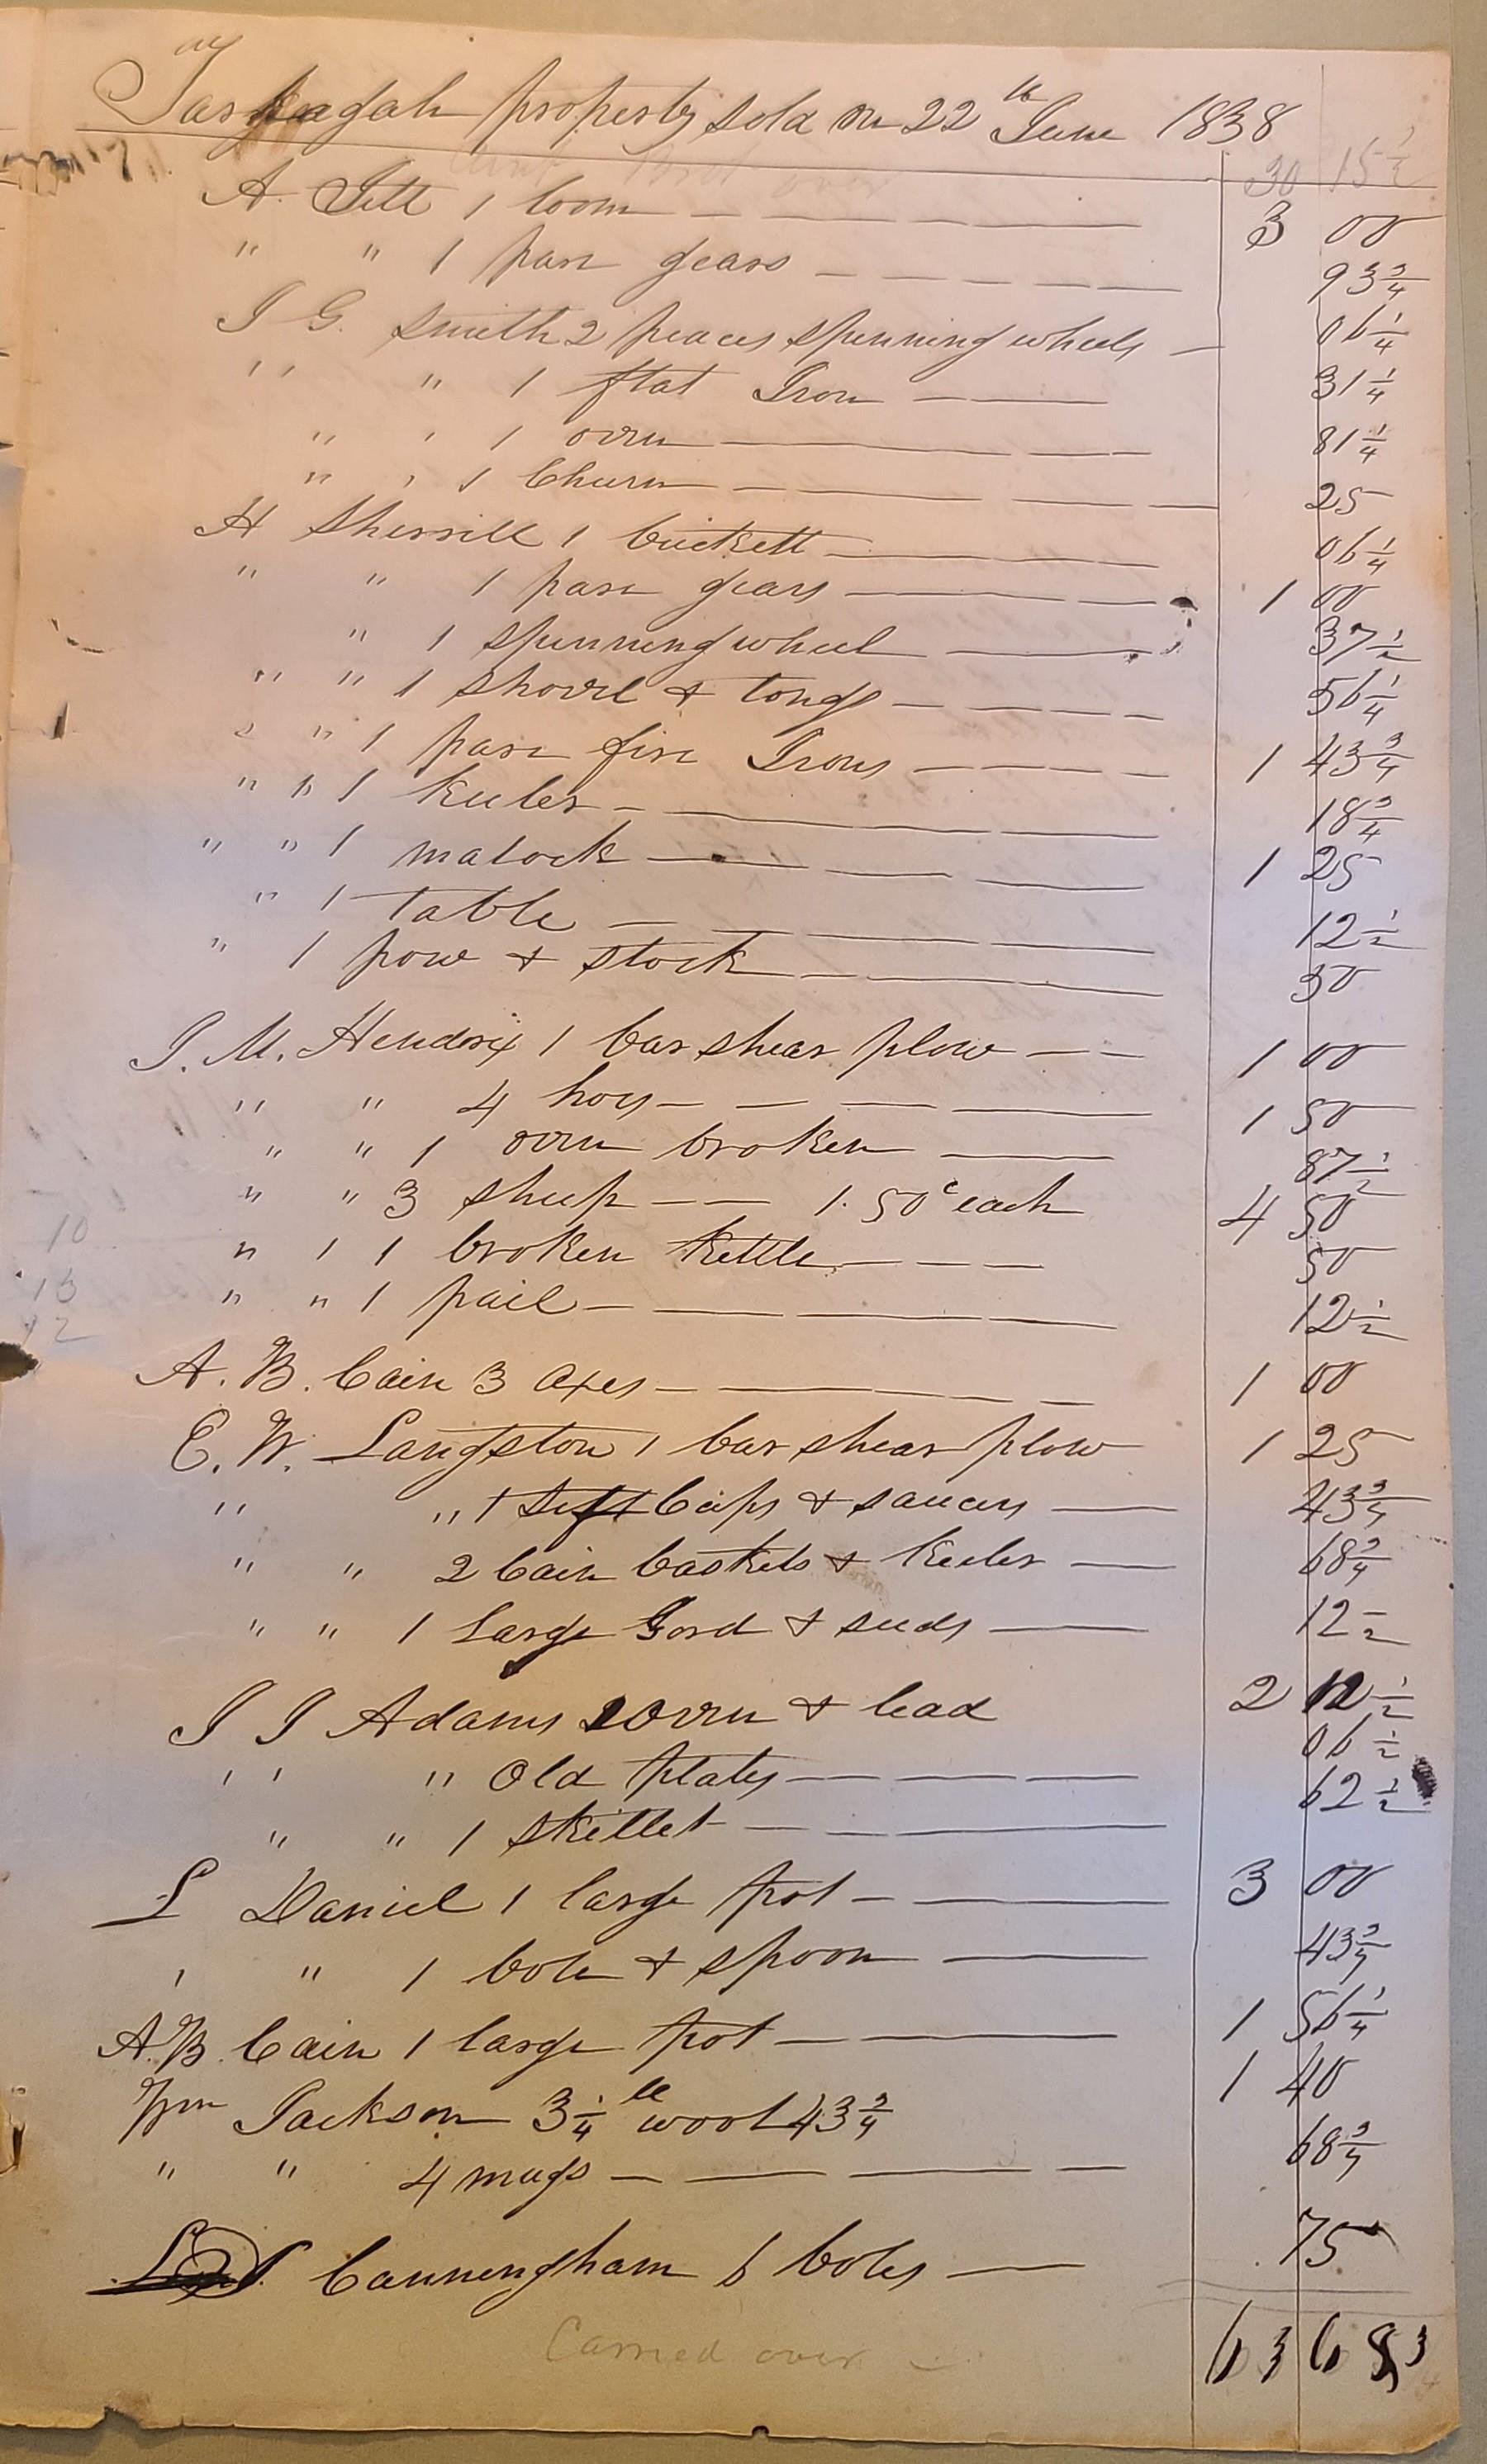 property sold on 22th June 1838
30 15 1/2
A. Jett 1 loom — — — — 3 00
" " 1 pare gears — — — — 93 3/4
J G. Smith 2 peaces spinning wheels — 06 1/4
" " 1 flat Iron — — 31 1/4
" " 1 oven — — — 81 1/4
" " 1 Churn — — — — 25
H Sherrill 1 buckett — — — 06 1/4
" " 1 pare gears — — — 1 00
" 1 spinning wheel — — 37 1/2
" " 1 shovel & tongs — — — — 56 1/4
" " 1 pare fire Irons — — — — 1 43 3/4
" " 1 keeler — — — — 18 3/4
" " 1 matock — — — — 1 25
" 1 table — — — — — 12 1/2
" 1 pow & stock — — — — 50
J. M. Hendrix 1 bar shear plow — — 1 00
" " 4 hoes — — — — 1 50
" " 1 oven broken — — 87 1/2
" " 3 sheep — — 1.50c each 4 50
" " 1 broken kettle — — — 50
" " 1 pail — — — — 12 1/2
10
13
12
A. B. Cain 3 axes — — — — 1 00
E. W. Langston 1 bar shear plow 1 25
" " 1 sett Cups & saucers — 43 3/4
" " 2 Cain baskets & keeler — 68 3/4
" " 1 Large Gord & seeds — 12 1/2
J J Adams 2 oven & lead 2 12 1/2
" " Old plates — — — 06 1/2
" " 1 skillet — — — 62 1/2
L Daniel 1 large pot — — 3 00
" " 1 bole & spoon — 43 3/4
A. B. Cain 1 large pot — — 1 56 1/4
Wm Jackson 3 1/4 lb wool 43 3/4 1 40
" " 4 mugs — — — — 68 3/4
Cunningham 6 boles — 75
Carried over — 63 68 3/4